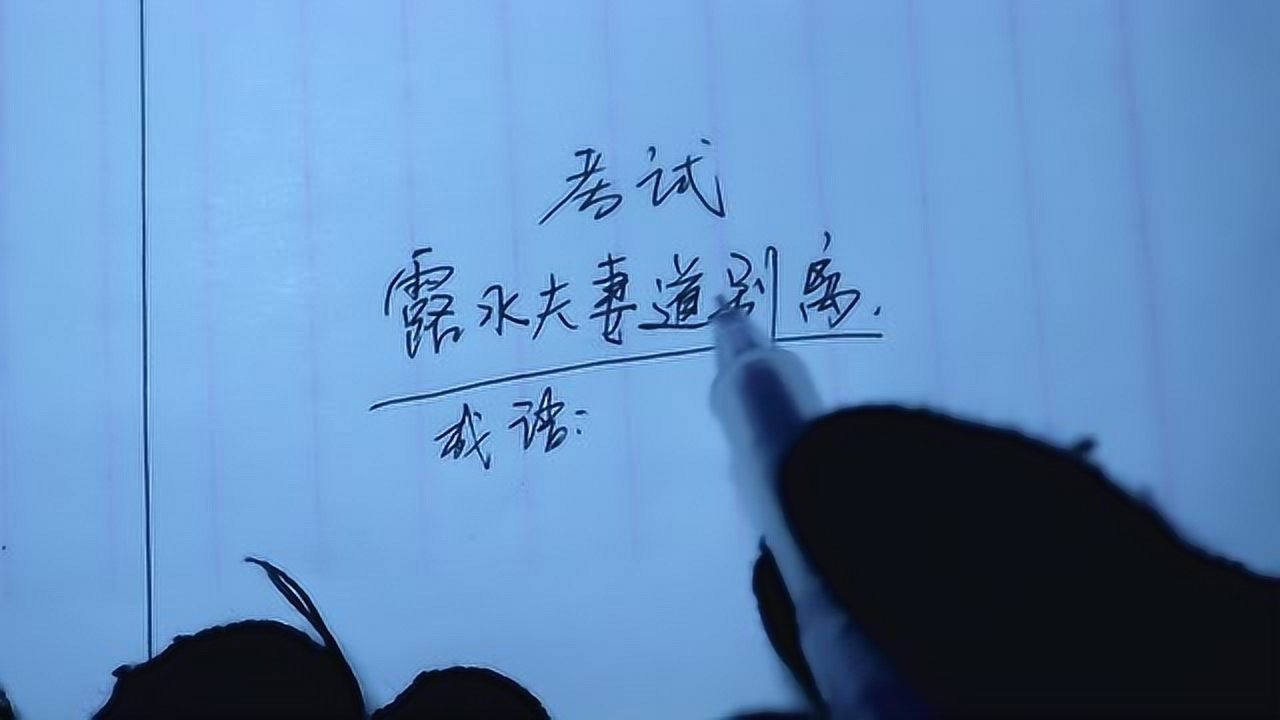 考试
露水夫妻道别离.
成语: